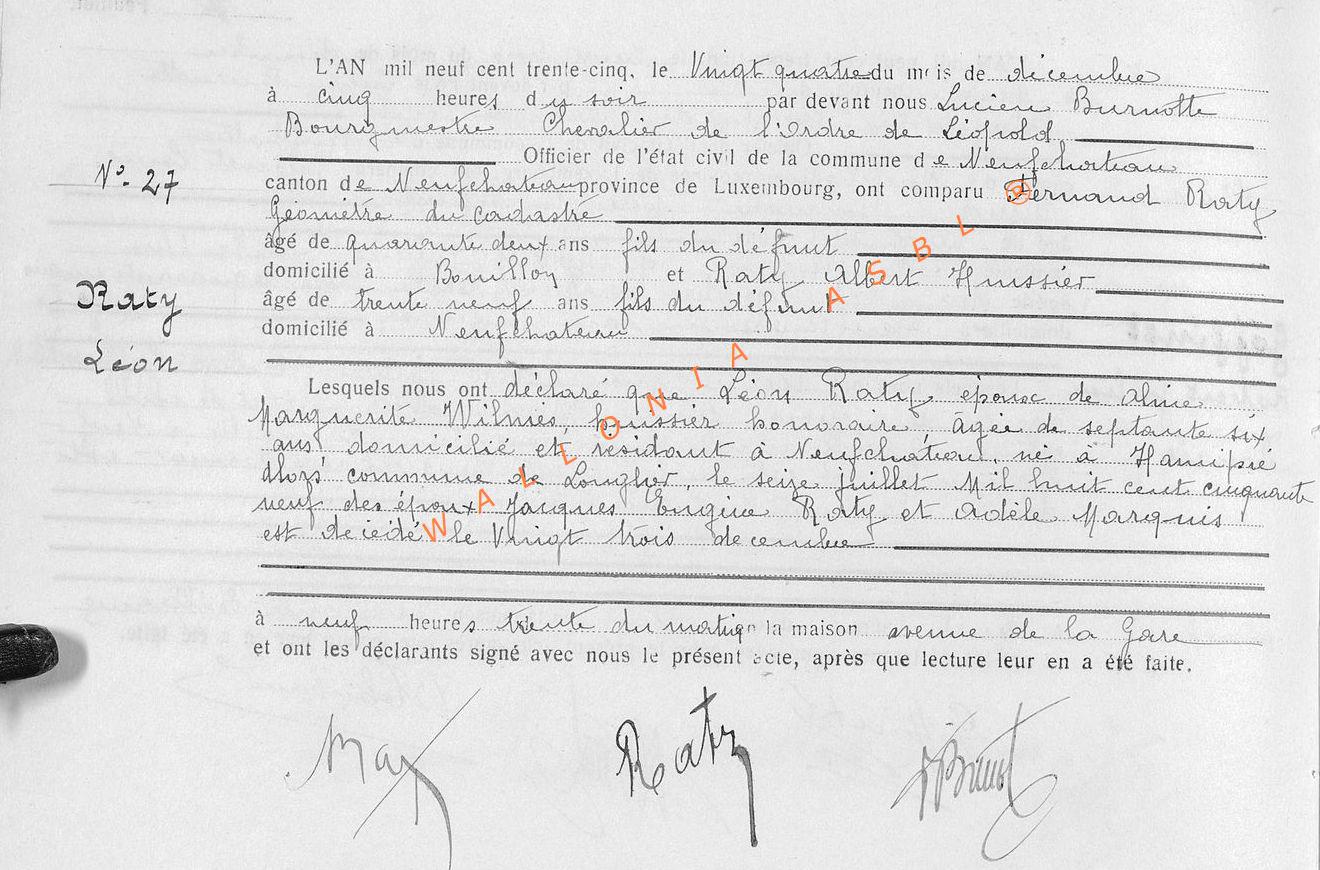 L'AN mil neuf cent trente-cinq, le Vingt quatre du mois de décembre
à cinq heures du soir par devant nous Lucien Burnotte
Bourgmestre Chevalier de l'Ordre de Léopold
Officier de l'état civil de la commune de Neufchateau
N° 27
canton de Neufchateau province de Luxembourg, ont comparu Fernand Raty
Géomètre du cadastre
âgé de quarante deux ans fils du défunt
domicilié à Bouillon et Raty Albert Huissier
Raty
âgé de trente neuf ans fils du défunt
domicilié à Neufchateau
Léon
Lesquels nous ont déclaré que Léon Raty, épouse de Aline
Marguerite Wilmès, huissier honoraire, âgée de septante six
ans domicilié et résidant à Neufchateau, né à Hamipré
alors commune de Longlier, le seize juillet Mil huit cent cinquante
neuf des époux Jacques Eugène Raty et Adèle Marquis
est decédé le Vingt trois decembre
à neuf heures trente du matin en la maison avenue de la Gare
et ont les déclarants signé avec nous le présent acte, après que lecture leur en a été faite.
Raty
WALLONIA ASBL ®